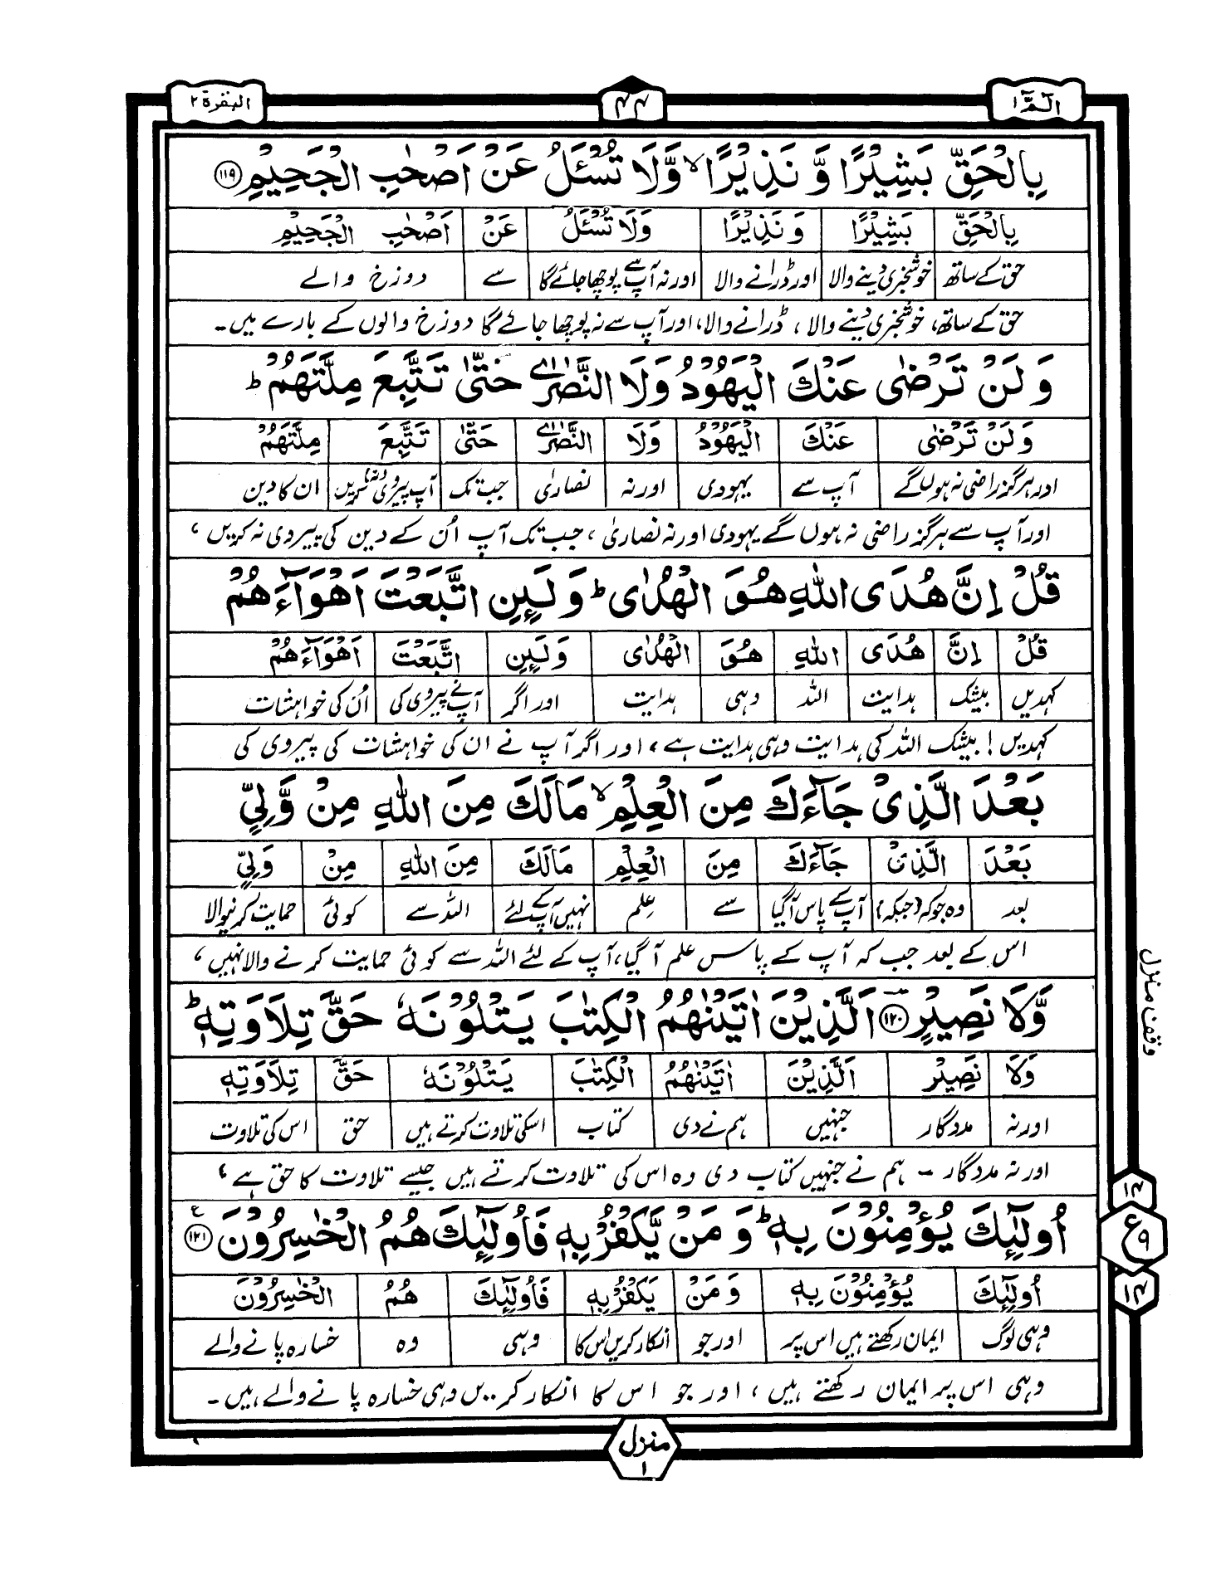 الٓمّٓ ١
۴۴
البقرة ٢
بِالْحَقِّ بَشِيْرًا وَّ نَذِيْرًا ۙ وَّلَا تُسْـَٔلُ عَنْ اَصْحٰبِ الْجَحِيْمِ ﴿۱۱۹﴾
بِالْحَقِّ بَشِيْرًا وَ نَذِيْرًا وَلَا تُسْـَٔلُ عَنْ اَصْحٰبِ الْجَحِيْمِ
حق کے ساتھ خوشخبری دینے والا اور ڈرانے والا اور نہ آپ سے پوچھا جائے گا سے دوزخ والے
حق کے ساتھ، خوشخبری دینے والا، ڈرانے والا، اور آپ سے نہ پوچھا جائے گا دوزخ والوں کے بارے میں۔
وَ لَنْ تَرْضٰى عَنْكَ الْيَهُوْدُ وَلَا النَّصٰرٰى حَتّٰى تَتَّبِعَ مِلَّتَهُمْ ؕ
وَ لَنْ تَرْضٰى عَنْكَ الْيَهُوْدُ وَلَا النَّصٰرٰى حَتّٰى تَتَّبِعَ مِلَّتَهُمْ
اور ہرگز راضی نہ ہوں گے آپ سے یہودی اور نہ نصاریٰ جب تک آپ پیروی نہ کریں ان کا دین
اور آپ سے ہرگز راضی نہ ہوں گے یہودی اور نہ نصاریٰ، جب تک آپ اُن کے دین کی پیروی نہ کریں،
قُلْ اِنَّ هُدَى اللّٰهِ هُوَ الْهُدٰى ؕ وَ لَىِٕنِ اتَّبَعْتَ اَهْوَآءَهُمْ
قُلْ اِنَّ هُدَى اللّٰهِ هُوَ الْهُدٰى وَ لَىِٕنِ اتَّبَعْتَ اَهْوَآءَهُمْ
کہدیں بیشک ہدایت اللہ وہی ہدایت اور اگر آپ نے پیروی کی اُن کی خواہشات
کہدیں! بیشک اللہ کی ہدایت وہی ہدایت ہے، اور اگر آپ نے ان کی خواہشات کی پیروی کی
بَعْدَ الَّذِىْ جَآءَكَ مِنَ الْعِلْمِ ۙ مَا لَكَ مِنَ اللّٰهِ مِنْ وَّلِىٍّ
بَعْدَ الَّذِىْ جَآءَكَ مِنَ الْعِلْمِ مَالَكَ مِنَ اللّٰهِ مِنْ وَلِىٍّ
بعد وہ جو کہ (جبکہ) آپ کے پاس آگیا سے علم نہیں آپ کے لئے اللہ سے کوئی حمایت کرنیوالا
اس کے بعد جب کہ آپ کے پاس علم آ گیا، آپ کے لئے اللہ سے کوئی حمایت کرنے والا نہیں،
وَّلَا نَصِيْرٍ ﴿۱۲۰﴾ اَلَّذِيْنَ اٰتَيْنٰهُمُ الْكِتٰبَ يَتْلُوْنَهٗ حَقَّ تِلَاوَتِهٖ ؕ
وَلَا نَصِيْرٍ اَلَّذِيْنَ اٰتَيْنٰهُمُ الْكِتٰبَ يَتْلُوْنَهٗ حَقَّ تِلَاوَتِهٖ
اور نہ مددگار جنہیں ہم نے دی کتاب اسکی تلاوت کرتے ہیں حق اس کی تلاوت
اور نہ مددگار۔ ہم نے جنہیں کتاب دی وہ اس کی تلاوت کرتے ہیں جیسے تلاوت کا حق ہے،
اُولٰٓىِٕكَ يُؤْمِنُوْنَ بِهٖ ؕ وَ مَنْ يَّكْفُرْ بِهٖ فَاُولٰٓىِٕكَ هُمُ الْخٰسِرُوْنَ ﴿۱۲۱﴾ ع
اُولٰٓىِٕكَ يُؤْمِنُوْنَ بِهٖ وَ مَنْ يَكْفُرْ بِهٖ فَاُولٰٓىِٕكَ هُمُ الْخٰسِرُوْنَ
وہی لوگ ایمان رکھتے ہیں اس پر اور جو انکار کریں اس کا وہی وہ خسارہ پانے والے
وہی اس پر ایمان رکھتے ہیں، اور جو اس کا انکار کریں وہی خسارہ پانے والے ہیں۔
وقف منزل
۱۴
ع ۹
۱۴
منزل
۱